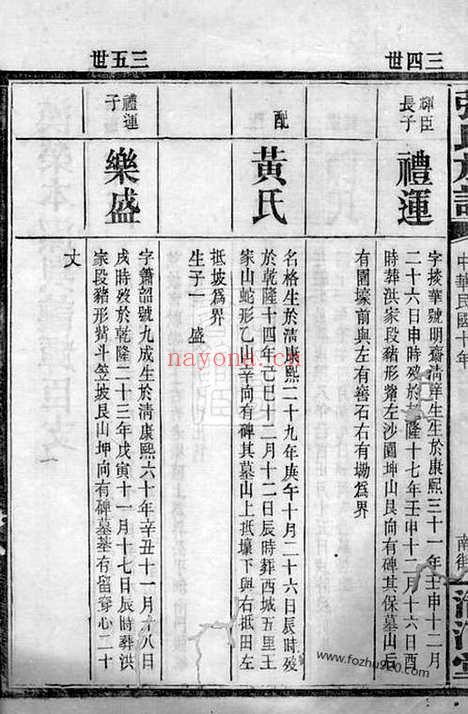 三四世
三五世
中華民國十年
輝臣
長子
禮運
字掞華號明齋清庠生生於康熙三十一年壬申十二月
二十六日申時歿於乾隆十七年壬申十二月十六日酉
時葬洪家段豬形觜左沙園坤山艮向有碑其保墓山后
有圍壕前與左有舊石右有坳爲界
配
黃氏
名格生於清康熙二十九年庚午十月二十六日辰時歿
於乾隆十四年己巳十二月十二日辰時葬西城五里王
家山蛇形乙山辛向有碑其墓山上抵壤下與右抵田左
抵坡爲界
生子一 盛
禮運
子
樂盛
字簫韶號九成生於清康熙六十年辛丑十一月十八日
戌時歿於乾隆二十三年戊寅十一月十七日辰時葬洪
家段豬形觜斗笠坡艮山坤向有碑墓基有留穿心二十
丈
nayona.cn
www.fozhu920.com